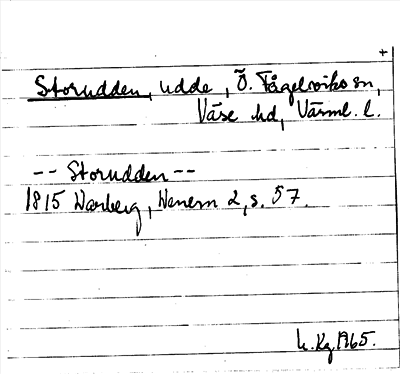 +
Storudden, udde, Ö. Fågelviks sn,
Väse hd, Värml. l.
-- Storudden --
1815 Warberg, Wenern 2, s. 57.
1965.